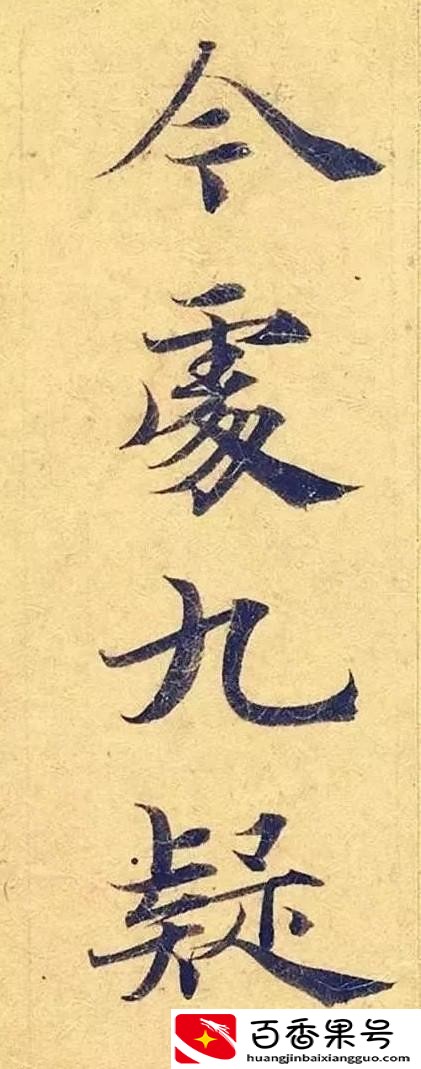 今處九疑
百香果号
huangjinbaixiangguo.com